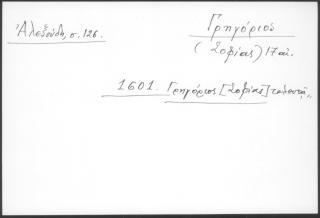 Ἀλεξούδη, σ. 126.
Γρηγόριος
(Σοφίας) 17 αἰ.
1601. Γρηγόριος [Σοφίας] τελευτᾷ,,